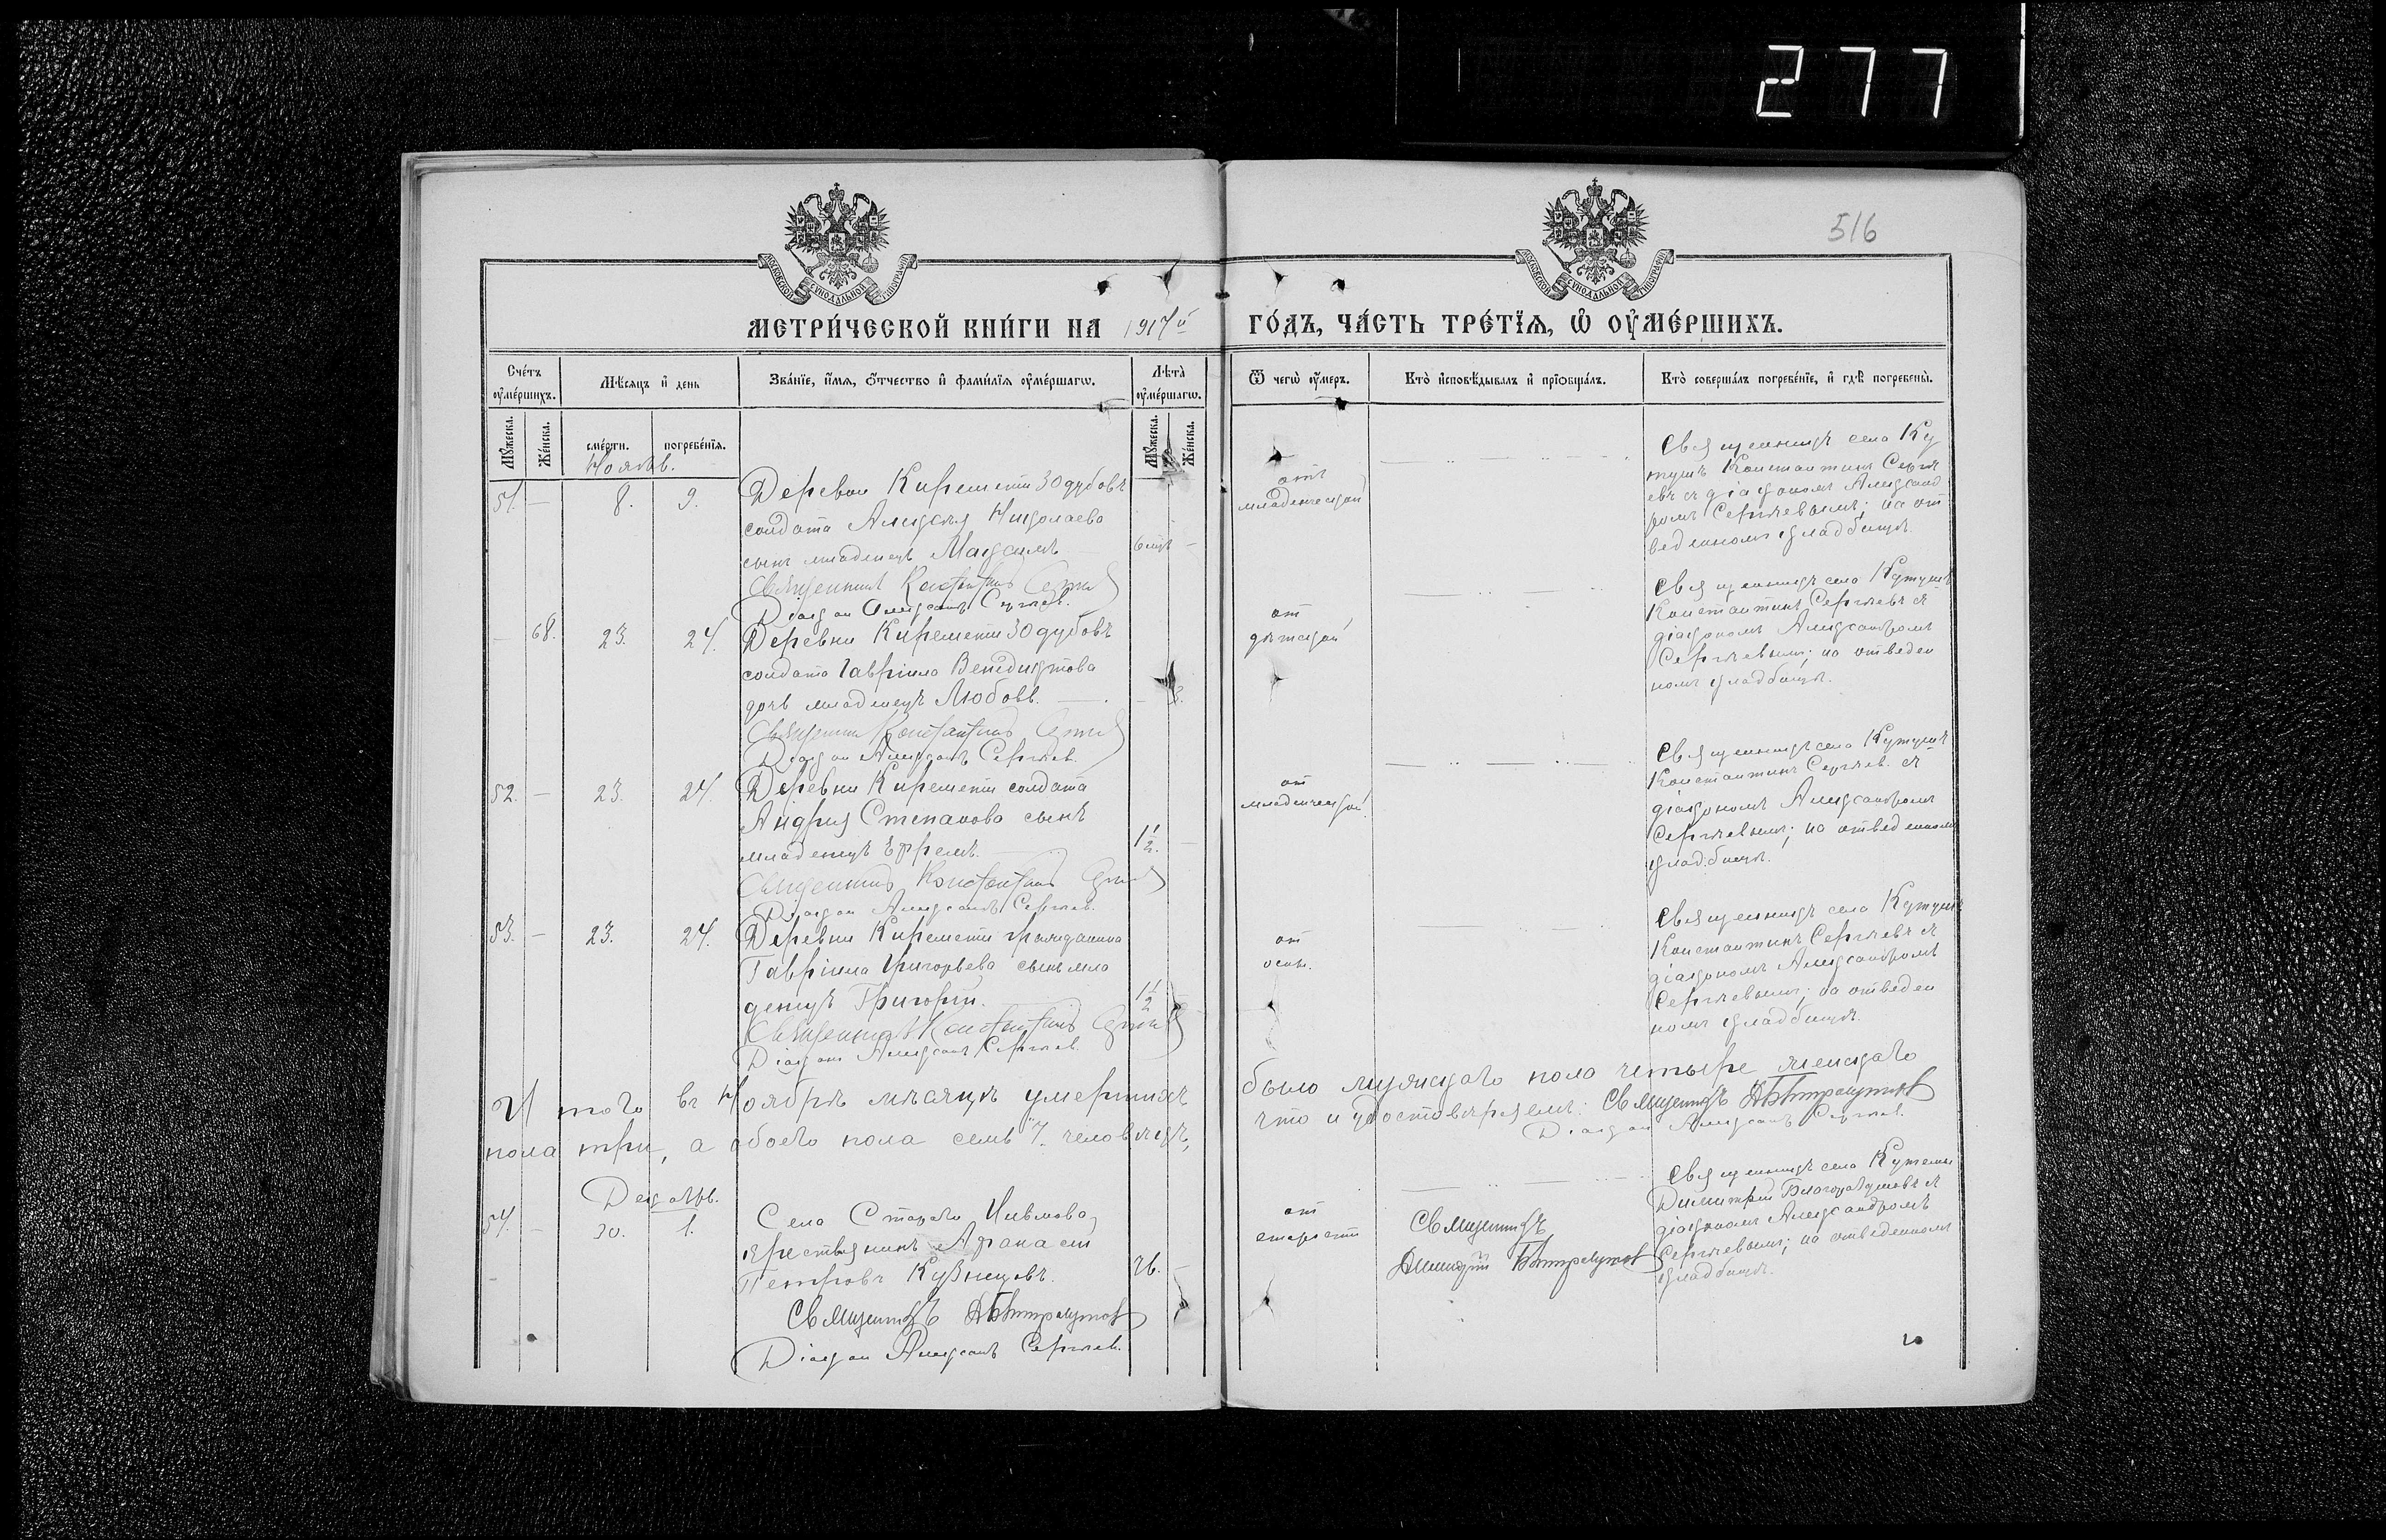 277
516
МОСКОВСКОЙ СѴНОДАЛЬНОЙ ТИПОГРАФІИ
МОСКОВСКОЙ СѴНОДАЛЬНОЙ ТИПОГРАФІИ
МЕТРИ́ЧЕСКОЙ КНИ́ГИ НА 1917й ГО́ДЪ, ЧА́СТЬ ТРЕ́ТЇѦ, Ѡ҆ ОУ҆МЕ́РШИХЪ.
Сче́тъ оу҆ме́ршихъ.
Мꙋ́жеска.
Же́нска.
Мѣ́сѧцъ и҆ день
сме́рти.
погребе́нїѧ.
Зва́нїе, и҆́мѧ, ѻ҆́тчество и҆ фами́лїѧ оу҆ме́ршагѡ.
Лѣ́та̀ оу҆ме́ршагѡ.
Мꙋ́жеска.
Же́нска.
Ѿ чегѡ̀ оу҆́меръ.
Кто̀ и҆сповѣ́дывалъ и҆ прїѻбща́лъ.
Кто̀ соверша́лъ погребе́нїе, и҆ гдѣ̀ погребены̀.
Ноябрь.
51. — 8. 9.
Деревни Киремети Зодубовъ
солдата Алексѣя Николаева
сынъ младенецъ Максимъ
6 мцъ —
Священникъ Константинъ Сергѣевъ
Діаконъ Александръ Сергѣевъ.
отъ
младенческой
Священникъ села Ку
тушъ Константинъ Сергѣ
евъ съ діакономъ Александ
ромъ Сергѣевымъ; на от
веденномъ кладбищѣ.
— 68. 23. 24.
Деревни Киремети Зодубовъ
солдата Гавріила Венедиктова
дочь младенецъ Любовь. — 3.
Священникъ Константинъ Сергѣевъ
Діаконъ Александръ Сергѣевъ.
от
дѣтской
Священникъ села Кутушъ
Константинъ Сергѣевъ съ
діакономъ Александромъ
Сергѣевымъ; на отведен
номъ кладбищѣ.
52. — 23. 24.
Деревни Киремети солдата
Андрея Степанова сынъ
младенецъ Ефремъ. 1½. —
Священникъ Константинъ Сергѣевъ
Діаконъ Александръ Сергѣевъ.
от
младенческой.
Священникъ села Кутушъ
Константинъ Сергѣев. съ
діакономъ Александромъ
Сергѣевымъ; на отведенномъ
кладбищѣ.
53. — 23. 24.
Деревни Киремети гражданина
Гавріила Григорьева сынъ мла
денецъ Григорій. 1½ —
Священникъ Константинъ Сергѣевъ
Діаконъ Александръ Сергѣев.
от
оспы.
Священникъ села Кутушъ
Константинъ Сергѣевъ съ
діакономъ Александромъ
Сергѣевымъ; на отведен
номъ кладбищѣ.
Итого въ Ноябрѣ мѣсяцѣ умершихъ было мужскаго пола четыре женскаго
пола три, а обоего пола семь "7". человѣкъ, что и удостовѣряемъ: Священникъ
Діаконъ Александръ Сергѣев.
Декабрь.
54. — 30. 1.
Села Стараго Ивлмова
крестьянинъ Афанасій
Петровъ Кузнецовъ. 76. —
Священникъ
Діаконъ Александръ Сергѣев.
от
старости
Священникъ
Димитрій
Священникъ села Кутемы
Димитрій съ
діакономъ Александромъ
Сергѣевымъ; на отведенномъ
кладбищѣ.